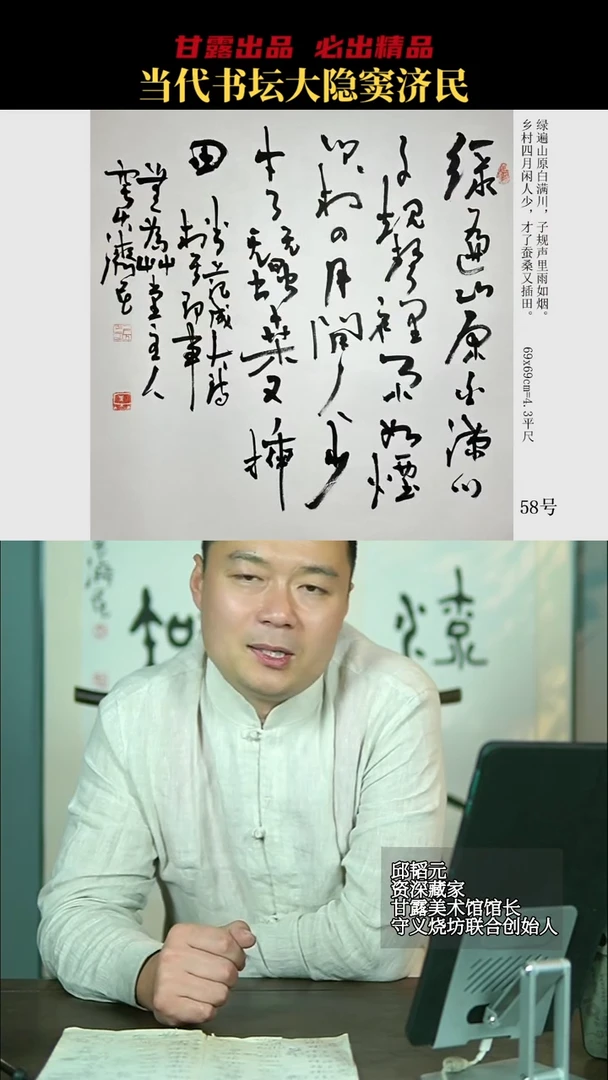 甘露出品 必出精品
当代书坛大隐窦济民
绿遍山原白满川,子规声里雨如烟。
乡村四月闲人少,才了蚕桑又插田。
69x69cm=4.3平尺
58号
绿遍山原白满川
子规聲裡雨如煙
乡村四月間人少
才了蠶桒又插
田
范成大诗
村居即事
堂主人
邱韬元
资深藏家
甘露美术馆馆长
守义烧坊联合创始人